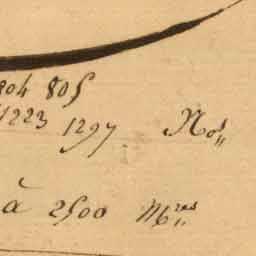 804 805
1223 1297 Nos
à 2500 Mres